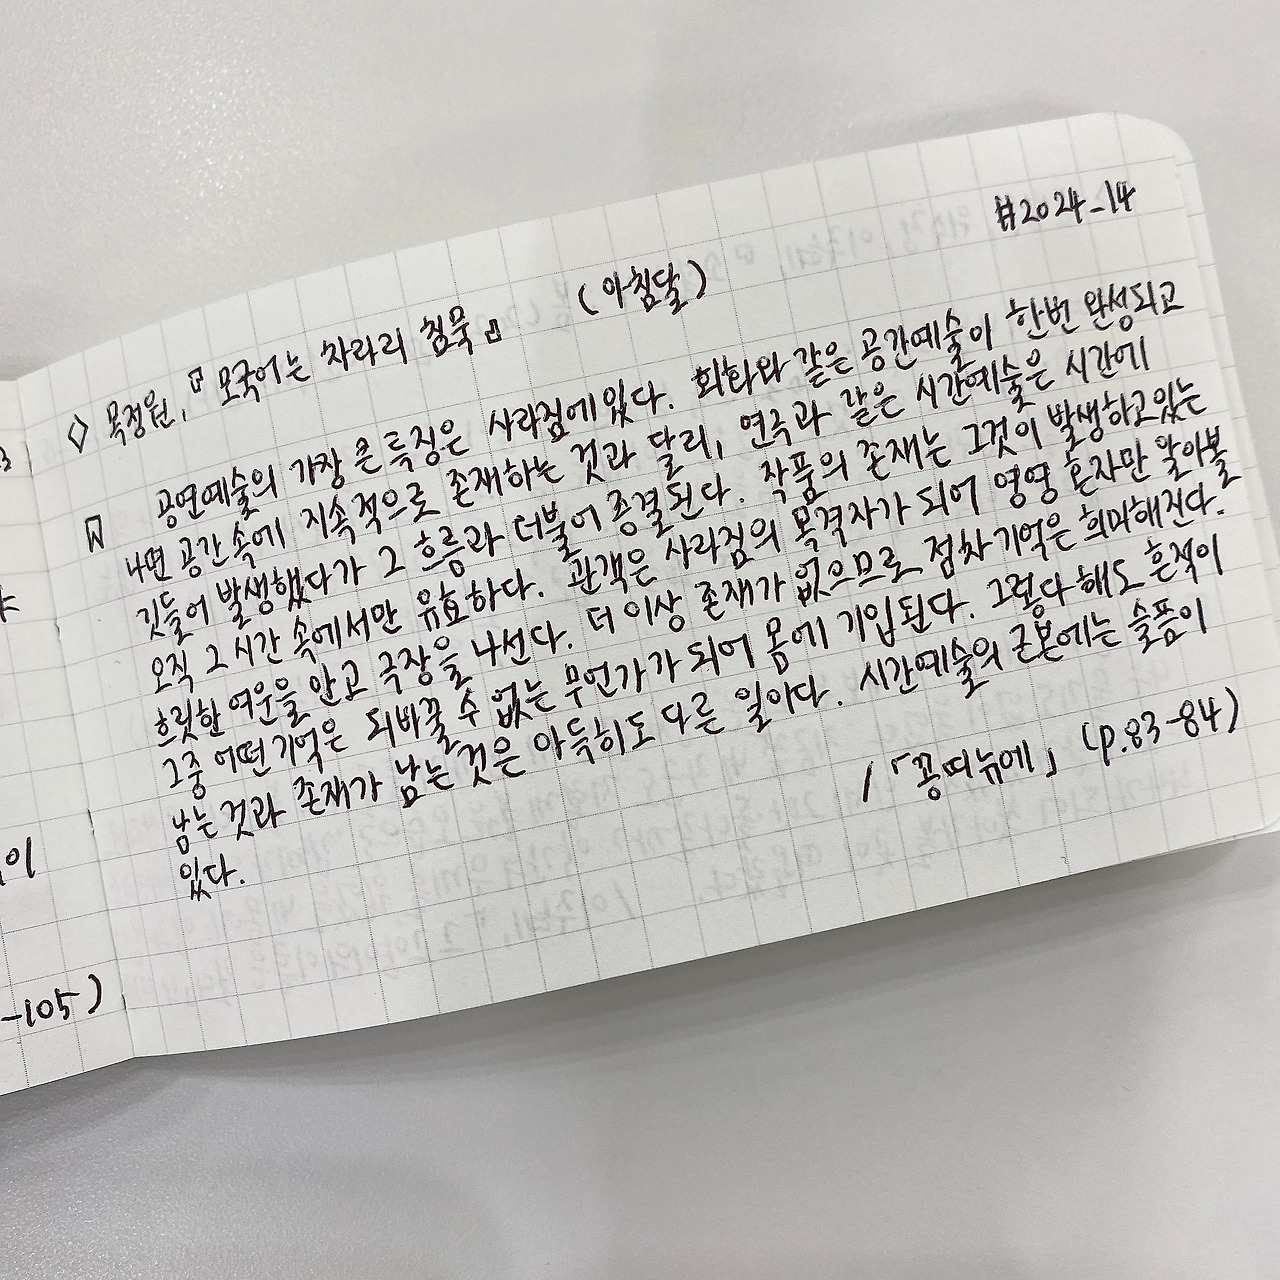 #2024-14
◇ 목정원, 『모국어는 차라리 침묵』 (아침달)
공연예술의 가장 큰 특징은 사라짐에 있다. 회화와 같은 공간예술이 한번 완성되고
나면 공간 속에 지속적으로 존재하는 것과 달리, 연극과 같은 시간예술은 시간에
깃들어 발생했다가 그 흐름과 더불어 종결된다. 작품의 존재는 그것이 발생하고 있는
오직 그 시간 속에서만 유효하다. 관객은 사라짐의 목격자가 되어 영영 혼자만 알아볼
흐릿한 여운을 안고 극장을 나선다. 더 이상 존재가 없으므로 점차 기억은 희미해진다.
그중 어떤 기억은 뒤바꿀 수 없는 무언가가 되어 몸에 기입된다. 그렇다 해도 흔적이
남는 것과 존재가 남는 것은 아득히도 다른 일이다. 시간예술의 근본에는 슬픔이
있다.
/「꽁띠뉴에」 (p.83-84)
-105)